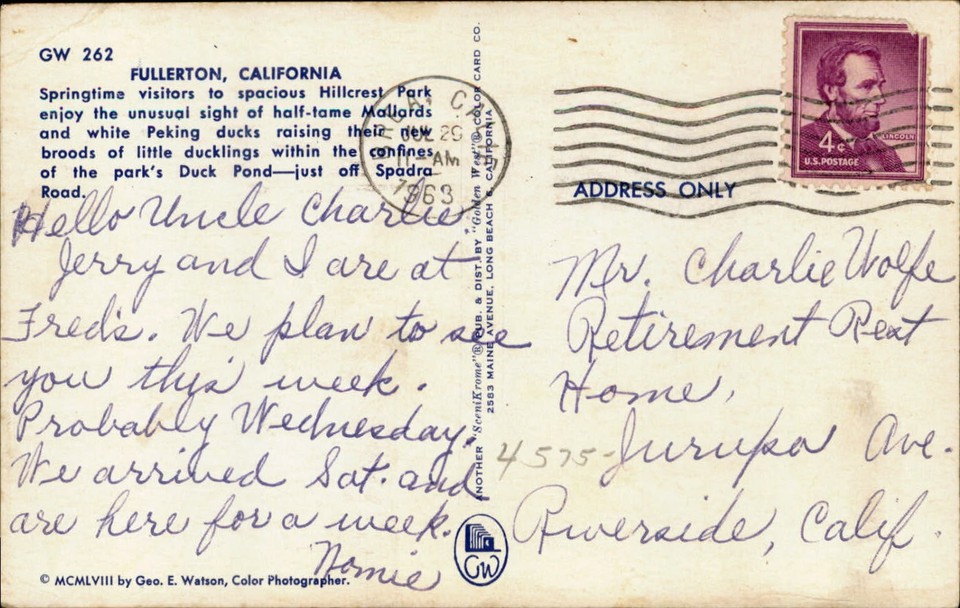 GW 262
FULLERTON, CALIFORNIA
Springtime visitors to spacious Hillcrest Park
enjoy the unusual sight of half-tame Mallards
and white Peking ducks raising their new
broods of little ducklings within the confines
of the park's Duck Pond—just off Spadra
Road.
Hello Uncle Charlie
Jerry and I are at
Fred's. We plan to see
you this week.
Probably Wednesday.
We arrived Sat. and
are here for a week.
Nomie
© MCMLVIII by Geo. E. Watson, Color Photographer.
ANOTHER "SceniKrome"® PUB. & DIST. BY "Golden West"® COLOR CARD CO.
2583 MAINE AVENUE, LONG BEACH 6, CALIFORNIA
GW
BREA, CALIF.
JUL 29
11-AM
1963
LINCOLN
4¢
U.S. POSTAGE
ADDRESS ONLY
Mr. Charlie Wolfe
Retirement Rest
Home,
4575-Jurupa Ave.
Riverside, Calif.